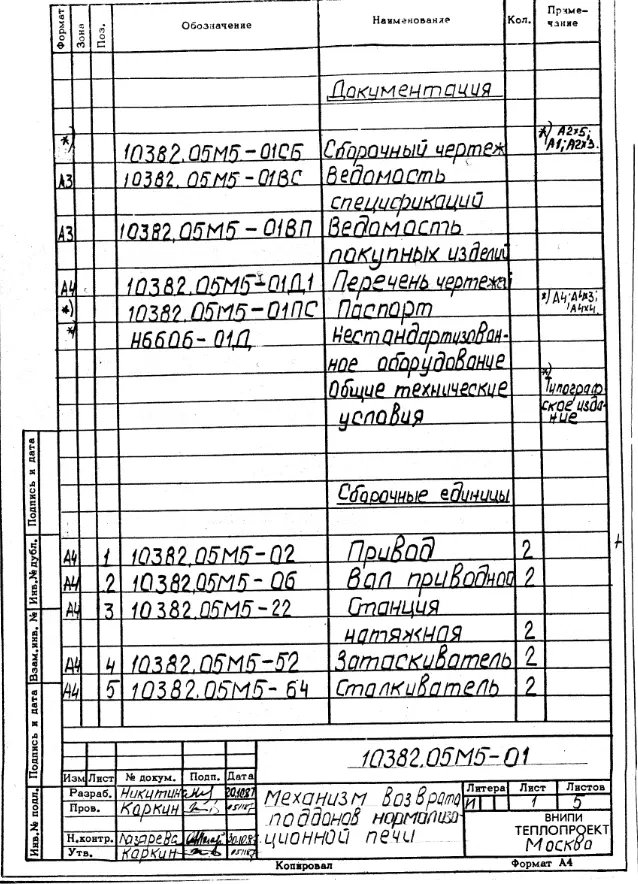 Формат Зона Поз. Обозначение Наименование Кол. Приме-
чание
Документация
*) 10382.05М5-01СБ Сборочный чертеж *) А2х5;
А1; А2х3.
А3 10382.05М5-01ВС Ведомость
спецификаций
А3 10382.05М5-01ВП Ведомость
покупных изделий
А4 10382.05М5-01Д1 Перечень чертежей
*) 10382.05М5-01ПС Паспорт *) А4; А4х3;
А4х4.
*) Н6606-01Д Нестандартизован-
ное оборудование
Общие технические *) Типограф-
условия ское изда-
ние
Сборочные единицы
А4 1 10382.05М5-02 Привод 2
А4 2 10382.05М5-06 Вал приводной 2
А4 3 10382.05М5-22 Станция
натяжная 2
А4 4 10382.05М5-52 Затаскиватель 2
А4 5 10382.05М5-64 Сталкиватель 2
Подпись и дата
Инв.№ дубл.
Взам.инв. №
Подпись и дата
Инв.№ подл.
10382.05М5-01
Изм Лист № докум. Подп. Дата
Разраб. Никитина
Пров. Каркин
Н.контр. Лазарева
Утв. Каркин
Механизм возврата
поддонов нормализа-
ционной печи
Литера Лист Листов
И 1 5
ВНИПИ
ТЕПЛОПРОЕКТ
Москва
Копировал Формат А4